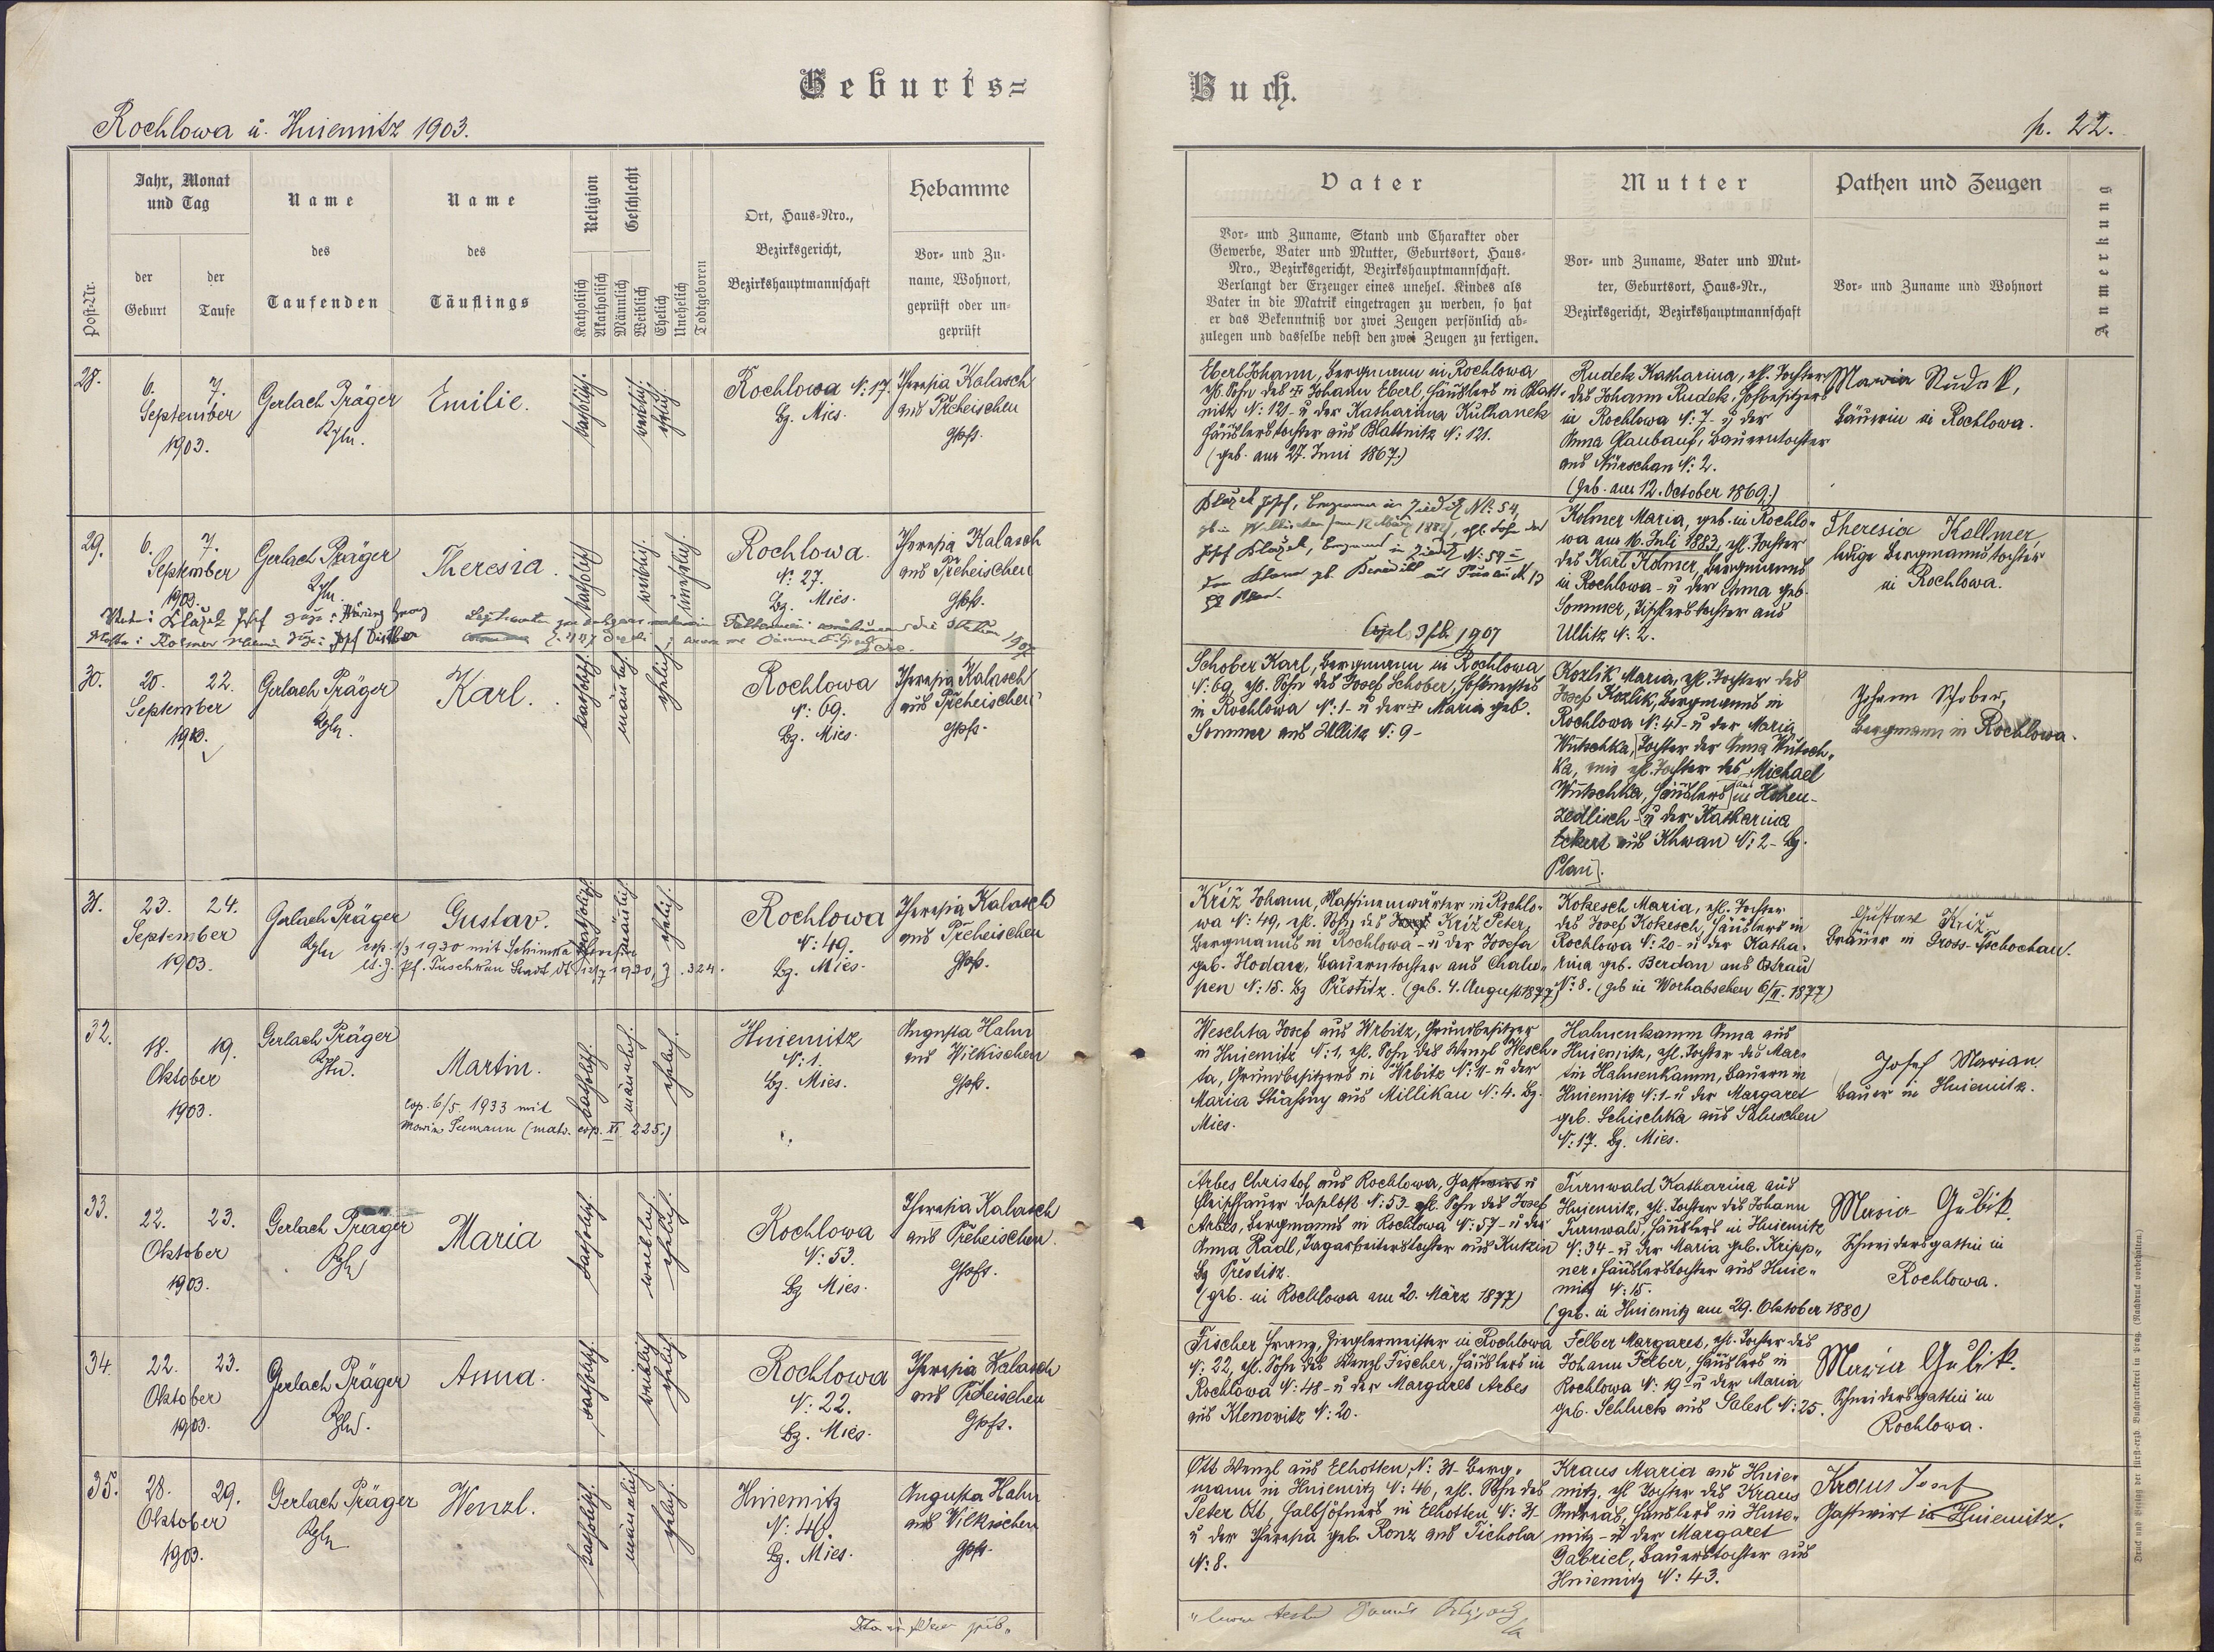 Geburts=
Buch.
Rochlowa u. Hniemitz 1903.
p. 22.
Post-Nr.
Jahr, Monat
und Tag
der
Geburt
der
Taufe
Name
des
Taufenden
Name
des
Täuflings
Religion
Katholisch
Akatholisch
Geschlecht
Männlich
Weiblich
Ehelich
Unehelich
Todtgeboren
Ort, Haus-Nro.,
Bezirksgericht,
Bezirkshauptmannschaft
Hebamme
Vor- und Zu-
name, Wohnort,
geprüft oder un-
geprüft
Vater
Vor- und Zuname, Stand und Charakter oder
Gewerbe, Vater und Mutter, Geburtsort, Haus-
Nro., Bezirksgericht, Bezirkshauptmannschaft.
Verlangt der Erzeuger eines unehel. Kindes als
Vater in die Matrik eingetragen zu werden, so hat
er das Bekenntniß vor zwei Zeugen persönlich ab-
zulegen und dasselbe nebst den zwei Zeugen zu fertigen.
Mutter
Vor- und Zuname, Vater und Mut-
ter, Geburtsort, Haus-Nr.,
Bezirksgericht, Bezirkshauptmannschaft
Pathen und Zeugen
Vor- und Zuname und Wohnort
Anmerkung
28.
6. 7.
September
1903.
Gerlach Präger
Emilie.
katholisch.
weiblich.
ehelich.
Rochlowa N: 17.
Bz. Mies.
Theresia Kalasch
aus Preheischen
Eberl Johann, Bergmann in Rochlowa
ehl. Sohn des † Johann Eberl, Häuslers in Blatt-
nitz N: 121 - u der Katharina Kulhanek
Häuslerstochter aus Blattnitz N: 121.
(geb. am 27. Juni 1867.)
Rudek Katharina, ehl. Tochter
des Johann Rudek, Hofbesitzers
in Rochlowa N: 7 - u der
Anna Glaubauf, Bauerntochter
aus Nürschan N: 2.
(Geb. am 12. October 1869.)
Maria Rudek,
Bäuerin in Rochlowa.
29.
6. 7.
September
1903.
Gerlach Präger
Theresia.
katholisch
weiblich.
unehelich.
Rochlowa.
N: 27.
Bz. Mies.
Theresia Kalasch
aus Preheischen
Josef
N: 54
Copl. 1907
Kolmer Maria, geb. in Rochlo-
wa am 16. Juli 1883, ehl. Tochter
des Karl Kolmer, Bergmanns
in Rochlowa - u der Anna geb.
Sommer, Tischlerstochter aus
Ullitz N: 2.
Theresia Kollmer,
ledige Bergmannstochter
in Rochlowa.
30.
20. 22.
September
1903.
Gerlach Präger
Karl.
katholisch.
männlich.
ehelich.
Rochlowa
N: 69.
Bz. Mies.
Theresia Kalasch
aus Preheischen
Schober Karl, Bergmann in Rochlowa
N: 69, ehl. Sohn des Josef Schober,
in Rochlowa N: 1 - u der † Maria geb.
Sommer aus Ullitz N: 9 -
Kozlik Maria, ehl. Tochter des
Josef Kozlik, Bergmanns in
Rochlowa N: 41 - u der Maria
Wutschka, Tochter der Anna Wutsch-
ka, ehl. Tochter des Michael
Wutschka, Häuslers in Hohen-
zedlisch - u der Katharina
Eckert aus Khwan N: 2 - Bz.
Plan).
Johann Schober,
Bergmann in Rochlowa.
31.
23. 24.
September
1903.
Gerlach Präger
Gustav.
katholisch.
männlich.
ehelich.
Rochlowa
N: 49.
Bz. Mies.
Theresia Kalasch
aus Preheischen
Kříž Johann, Maschinenwärter in Rochlo-
wa N: 49, ehl. Sohn des Kříž Peter,
Bergmanns in Rochlowa - u der Josefa
geb. Hodan, Bauerntochter aus Chalu-
pen N: 15. Bz Přestitz. (geb. 4. August 1877)
Kokesch Maria, ehl. Tochter
des Josef Kokesch, Häuslers in
Rochlowa N: 20 - u der Katha-
rina geb. Berdan aus Ostrau
N: 8. (geb in Worhabschen 6/II. 1877)
Gustav Kříž,
Bräuer in Gross-Tschochau.
32.
18. 19.
Oktober
1903.
Gerlach Präger
Martin.
cop. 6/5 1933 mit
Maria Seemann (matr. cop. XI 225.)
katholisch.
männlich.
ehelich.
Hniemitz
N: 1.
Bz. Mies.
Augusta Hahn
aus Wilkischen
Weschta Josef aus Wrbitz, Grundbesitzer
in Hniemitz N: 1, ehl. Sohn des Wenzl Wesch-
ta, Grundbesitzers in Wrbitz N: 11 - u der
Maria aus Millikau N: 4. Bz.
Mies.
Hahnenkamm Anna aus
Hniemitz, ehl. Tochter des Mar-
tin Hahnenkamm, Bauern in
Hniemitz N: 1 - u der Margaret
geb. Schischka aus Saluschen
N: 17. Bz. Mies.
Josef Marian
Bauer in Hniemitz.
33.
22. 23.
Oktober
1903.
Gerlach Präger
Maria
katholisch
weiblich.
ehelich.
Rochlowa
N: 53.
Bz Mies.
Theresia Kalasch
aus Preheischen.
Arbes Christof aus Rochlowa, Gastwirt u
Fleischhauer daselbst N: 53 - ehl. Sohn des Josef
Arbes, Bergmanns in Rochlowa N: 57 - u der
Anna Rädl, Tagarbeiterstochter aus Kukin
Bz Přestitz.
(geb. in Rochlowa am 20. März 1877)
Turnwald Katharina aus
Hniemitz, ehl. Tochter des Johann
Turnwald, Häuslers in Hniemitz
N: 34 - u der Maria geb. Kripp-
ner, Häuslerstochter aus Hnie-
mitz N: 15.
(geb. in Hniemitz am 29. Oktober 1880)
Maria Gubik,
Schneidersgattin in
Rochlowa.
34.
22. 23.
Oktober
1903.
Gerlach Präger
Anna.
katholisch.
weiblich
ehelich.
Rochlowa
N: 22.
Bz. Mies.
Theresia Kalasch
aus Preheischen
Fischer Franz, Zieglermeister in Rochlowa
N: 22, ehl. Sohn des Wenzl Fischer, Häuslers in
Rochlowa N: 48 - u der Margareth Arbes
aus Klenowitz N: 20.
Felber Margaret, ehl. Tochter des
Johann Felber, Häuslers in
Rochlowa N: 19 - u der Maria
geb. Schluck aus Salesl N: 25.
Maria Gubik.
Schneidersgattin in
Rochlowa.
35.
28. 29.
Oktober
1903.
Gerlach Präger
Wenzl.
katholisch.
männlich.
ehelich.
Hniemitz
N: 46.
Bz. Mies.
Augusta Hahn
aus Wilkischen
Ott Wenzl aus Elhotten, N: 31 - Berg-
mann in Hniemitz N: 46, ehl. Sohn des
Peter Ott, Halbhöfners in Elhotten N: 31 -
u der Theresia geb. Ronz aus Tichola
N: 8.
Kraus Maria aus Hnie-
mitz, ehl Tochter des Kraus
Andreas, Häuslers in Hnie-
mitz - u der Margaret
Gabriel, Bauerstochter aus
Hniemitz N: 43.
Kraus Josef
Gastwirt in Hniemitz.
Druck und Verlag der fürst-erzb. Buchdruckerei in Prag. (Nachdruck vorbehalten.)